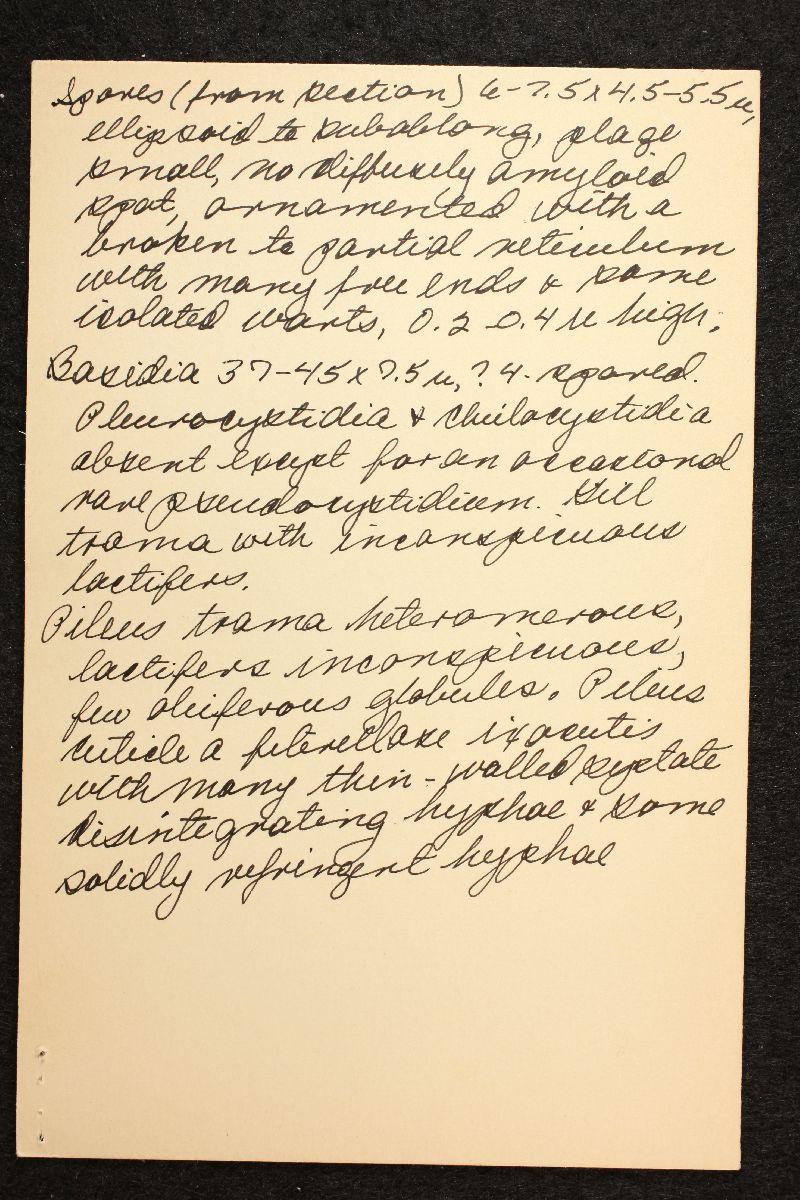 Spores (from section) 6-7.5 x 4.5-5.5 µ,
ellipsoid to suboblong, plage
small, no diffusely amyloid
spot, ornamented with a
broken to partial reticulum
with many free ends & some
isolated warts, 0.2-0.4 µ high.
Basidia 37-45 x 7.5 µ, ? 4-spored.
Pleurocystidia & cheilocystidia
absent except for an occasional
rare pseudocystidium. Gill
trama with inconspicuous
lactifers.
Pileus trama heteromerous,
lactifers inconspicuous,
few oleiferous globules. Pileus
cuticle a fiberellose ixocutis
with many thin-walled septate
disintegrating hyphae & some
solidly refringent hyphae